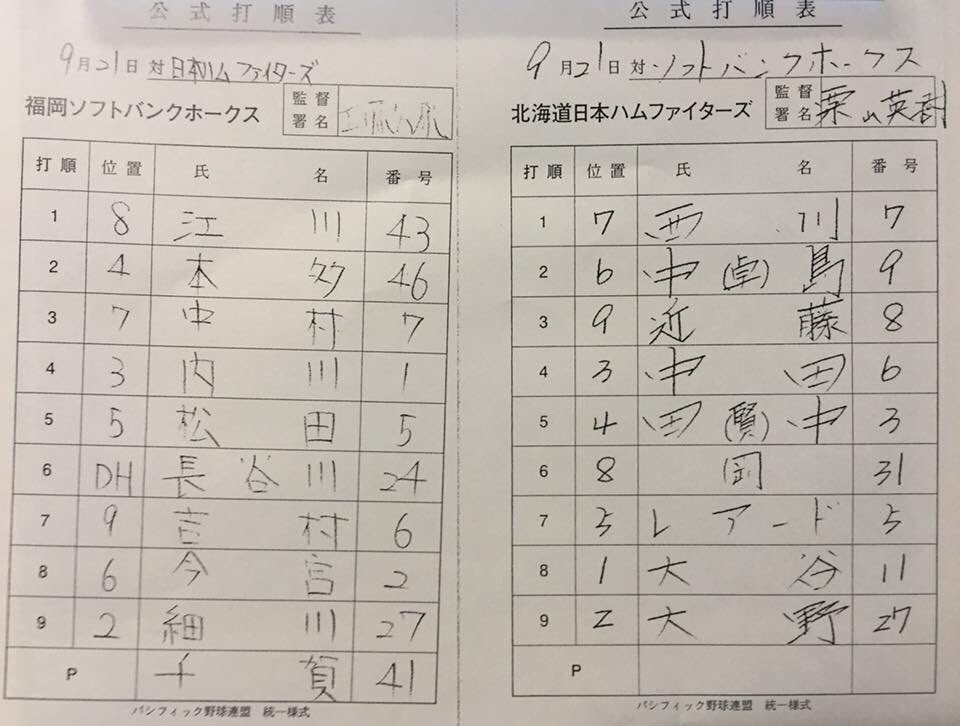 公式打順表
9月21日 対 日本ハムファイターズ
福岡ソフトバンクホークス 監督署名
打順 位置 氏名 番号
1 8 江川 43
2 4 本多 46
3 7 中村 7
4 3 内川 1
5 5 松田 5
6 DH 長谷川 24
7 9 吉村 6
8 6 今宮 2
9 2 細川 27
P 千賀 41
パシフィック野球連盟 統一様式
公式打順表
9月21日 対 ソフトバンクホークス
北海道日本ハムファイターズ 監督署名 栗山英樹
打順 位置 氏名 番号
1 7 西川 7
2 6 中(卓)島 9
3 9 近藤 8
4 3 中田 6
5 4 田(賢)中 3
6 8 岡 31
7 5 レアード 5
8 1 大谷 11
9 2 大野 27
P
パシフィック野球連盟 統一様式